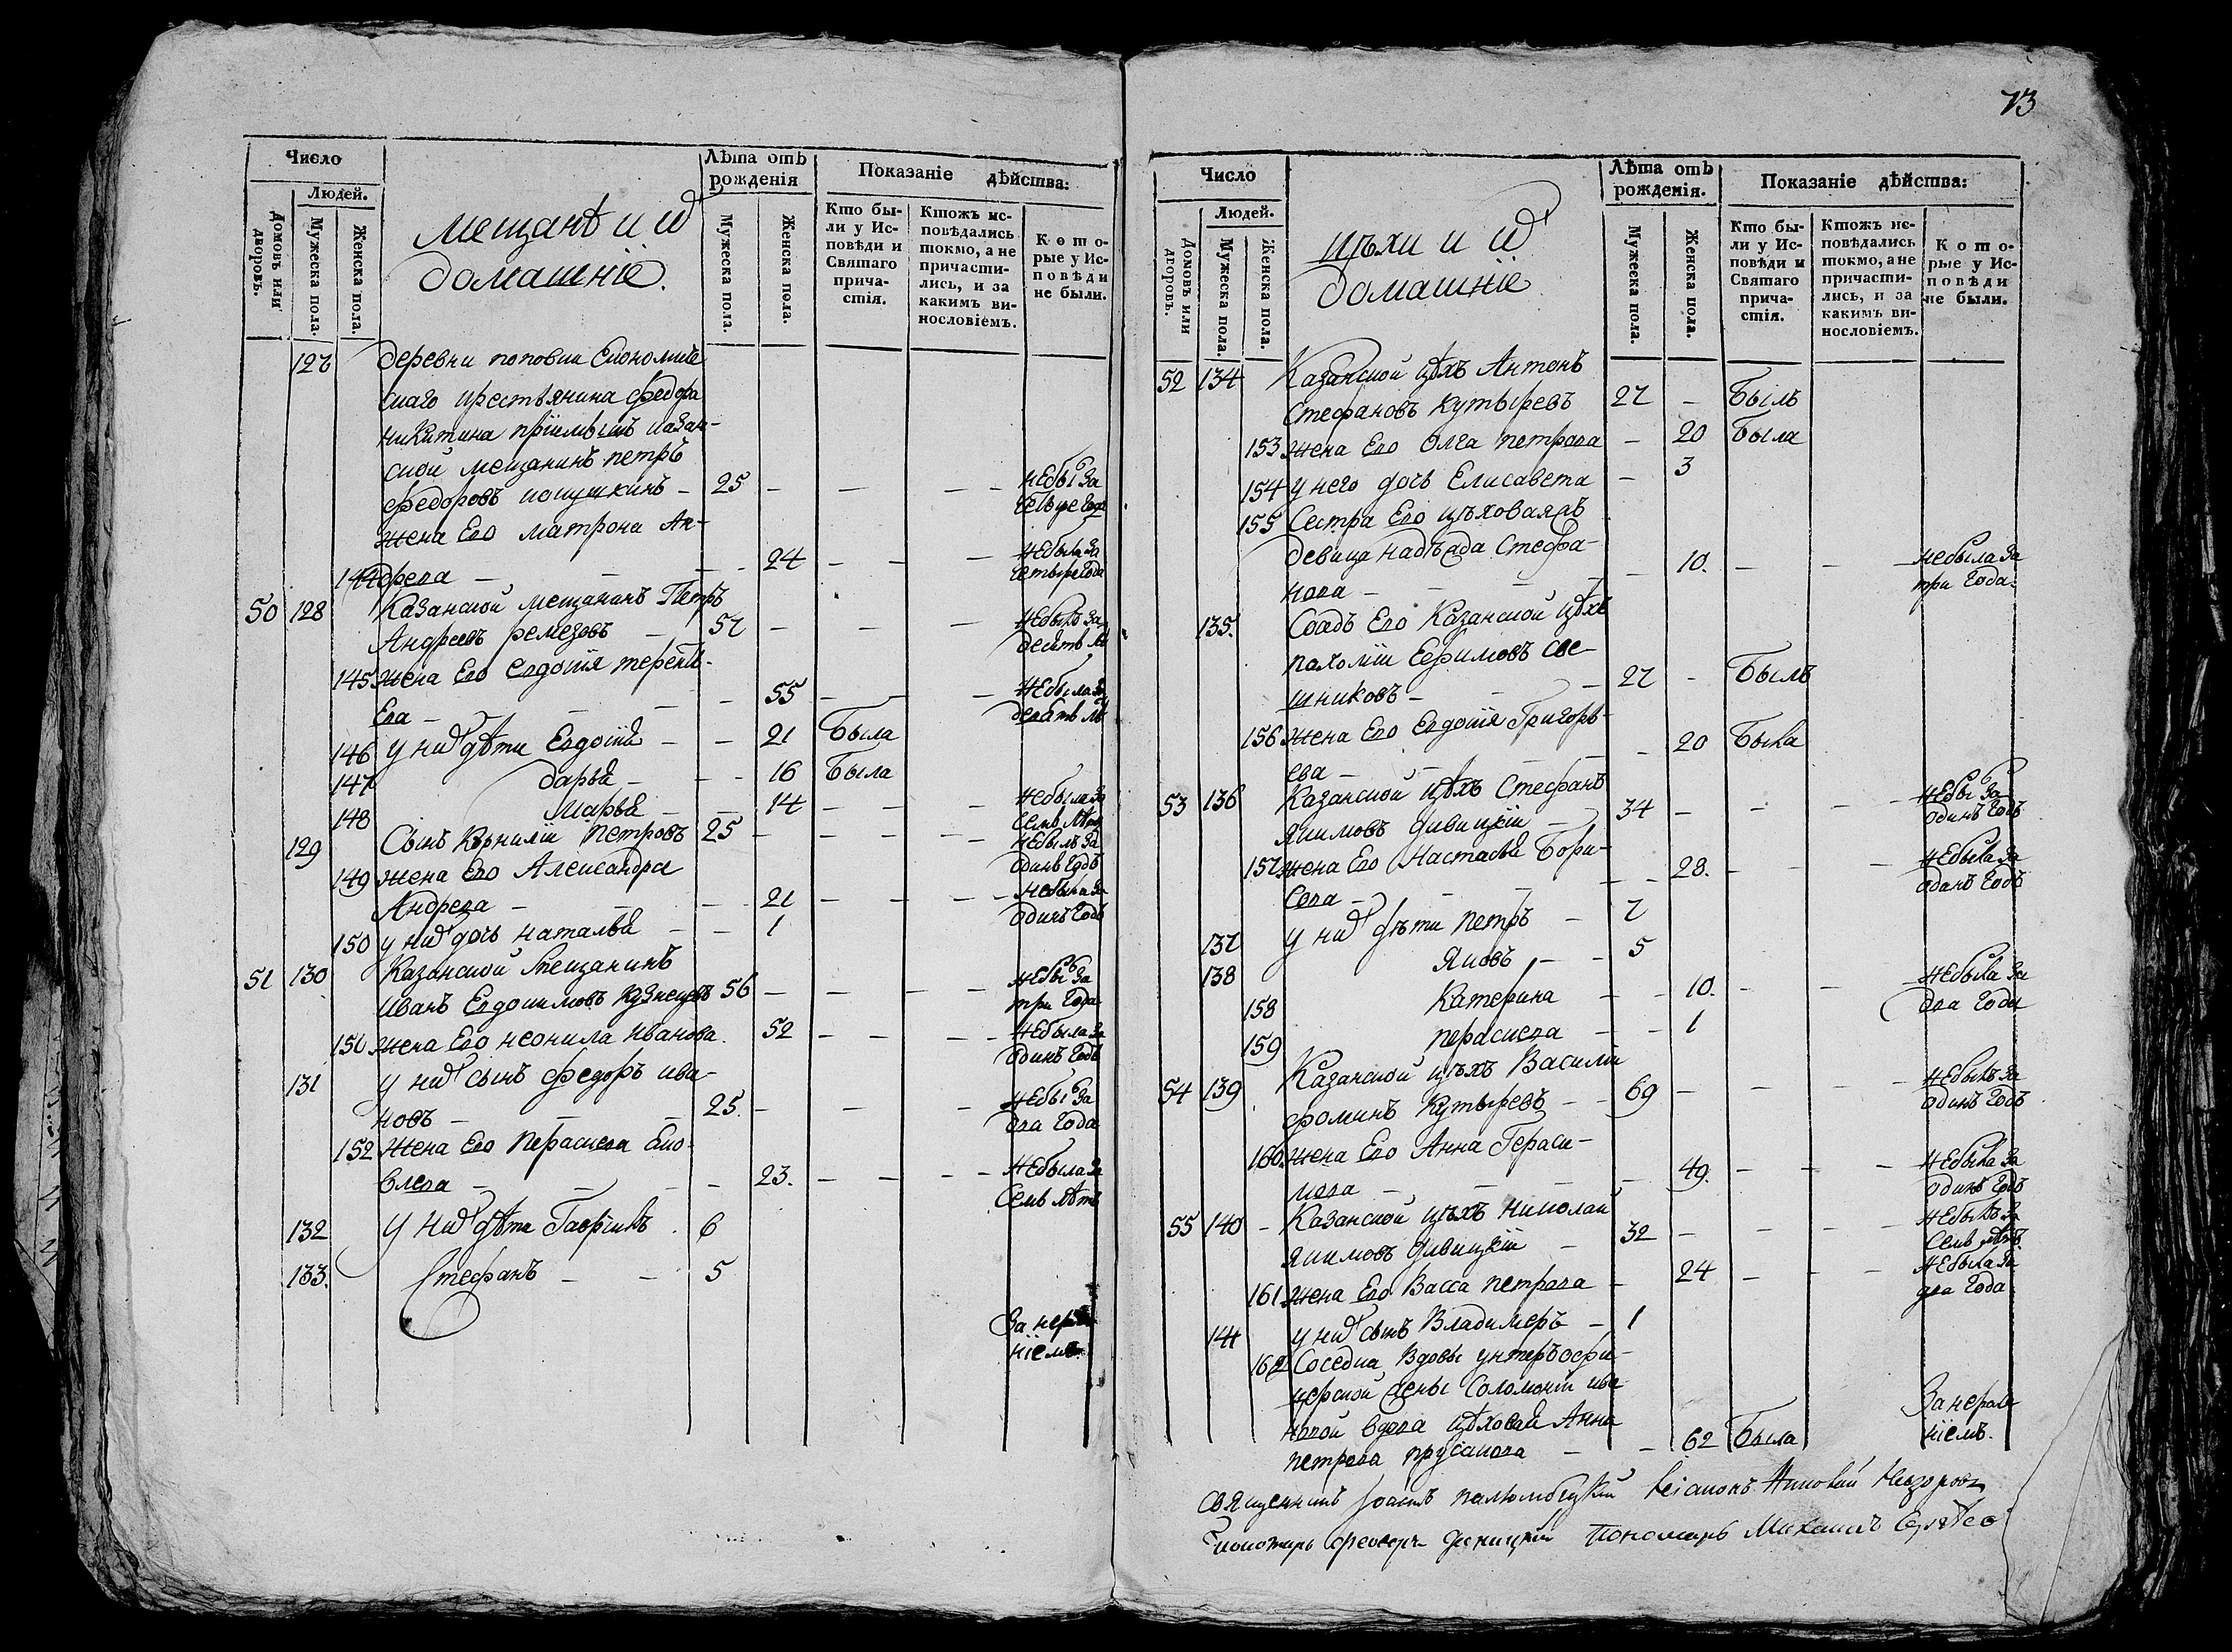 73
Число
Людей.
Домовъ или дворовъ.
Мужеска пола.
Женска пола.
мещанѣ и ихъ
домашніе.
Лѣта отъ рожденія
Мужеска пола.
Женска пола.
Показаніе дѣйства:
Кто были у Исповѣди и Святаго причастія.
Ктожъ исповѣдались токмо, а не причастились, и за какимъ винословіемъ.
Которые у Исповѣди не были.
127 деревни поповки Економиче
скаго крестьянина Федора
Никитина пріимышъ казан-
ской мещанинъ петръ
Федоровъ - 25 - - - - небылъ за
четыре года
жена Его матрона Ан-
144 древа - - - 24 - - - небыла за
четыре года
50 128 Казанской мещанинъ Петръ
Андреевъ ремезовъ - 57 - - - - небылъ за
десять лѣ
145 жена Его Евдокія терентье-
Ева - - - - 55 - - - небыла за
десять лѣ
146 у нихъ дѣти Евдокія - - 21 Была
147 дарья - - - 16 Была
148 Марья - - 14 - - - небыла за
семь лѣтъ
129 Сынъ Корнилій Петровъ 25 - - - - небылъ за
одинъ годъ
149 жена Его Александра
Андрева - - - 21 - - - - небыла за
одинъ годъ
150 у нихъ дочь наталья - - 1
51 130 Казанской Мещанинъ
Иванъ Евдокимовъ кузнецовъ 56 - - - - небылъ за
три года
151 жена Его неонила Иванова. 52 - - - - небыла за
одинъ годъ
131 у нихъ сынъ Федоръ ива-
новъ - - - 25. - - - небылъ за
два года
152 жена Его Параскева Яко-
влева - - - - 23. - - - - небыла за
Семь лѣтъ
132 у нихъ дѣти Гавріилъ . 6
133. Стефанъ - - 5
За нераде-
ніемъ.
Число
Людей.
Домовъ или дворовъ.
Мужеска пола.
Женска пола.
цѣхи и ихъ
домашніе
Лѣта отъ рожденія.
Мужеска пола.
Женска пола.
Показаніе дѣйства:
Кто были у Исповѣди и Святаго причастія.
Ктожъ исповѣдались токмо, а не причастились, и за какимъ винословіемъ.
Которые у Исповѣди не были.
52 134 Казанской цѣхъ Антонъ
Стефановъ кутыревъ 27 - Былъ
153 жена Его Олга петрова - 20 Была
154 у него дочь Елисавета - 3
155 Сестра Его цѣховаяжъ
девица надѣжда Стефа-
нова - - - - - 10. - - - небыла за
три года.
135. Соседъ Его Казанской цѣхъ
пахомій Ефимовъ Све-
шниковъ - - - 27 - Былъ
156 жена Его Евдокія Григорь-
ева - - - - - 20 Была
53 136 Казанской цѣхъ Стефанъ
Якимовъ - 34 - - - - небылъ за
одинъ годъ
157 жена Его Настасья Бори-
сова - - - - - 28. - - - небыла за
одинъ годъ
137 у нихъ дѣти петръ - 7
138 Яковъ - - 5
158 Катерина - - 10. - - - небыла за
два года
159 параскева - - 1
54 139 Казанской цѣхъ Василий
фоминъ Кутыревъ - - 69 - - - - небылъ за
одинъ годъ
160. жена Его Анна Гераси-
мова - - - - - 49. - - - небыла за
одинъ годъ
55 140 - Казанской цѣхъ николай
Якимовъ - 32 - - - - небылъ за
Семь лѣтъ
161 жена Его Васса петрова - 24 - - - небыла за
два года
141 у нихъ сынъ Владимеръ - 1
162 Соседка вдовы унтеръофи-
церской жены Соломоніи ива-
новой вдова цѣховая Анна
петрова прусакова - - 62 Была
За нераде-
ніемъ.
священникъ Іоаннъ Діаконъ Николай Невзоровъ
Пономарь Михаилъ